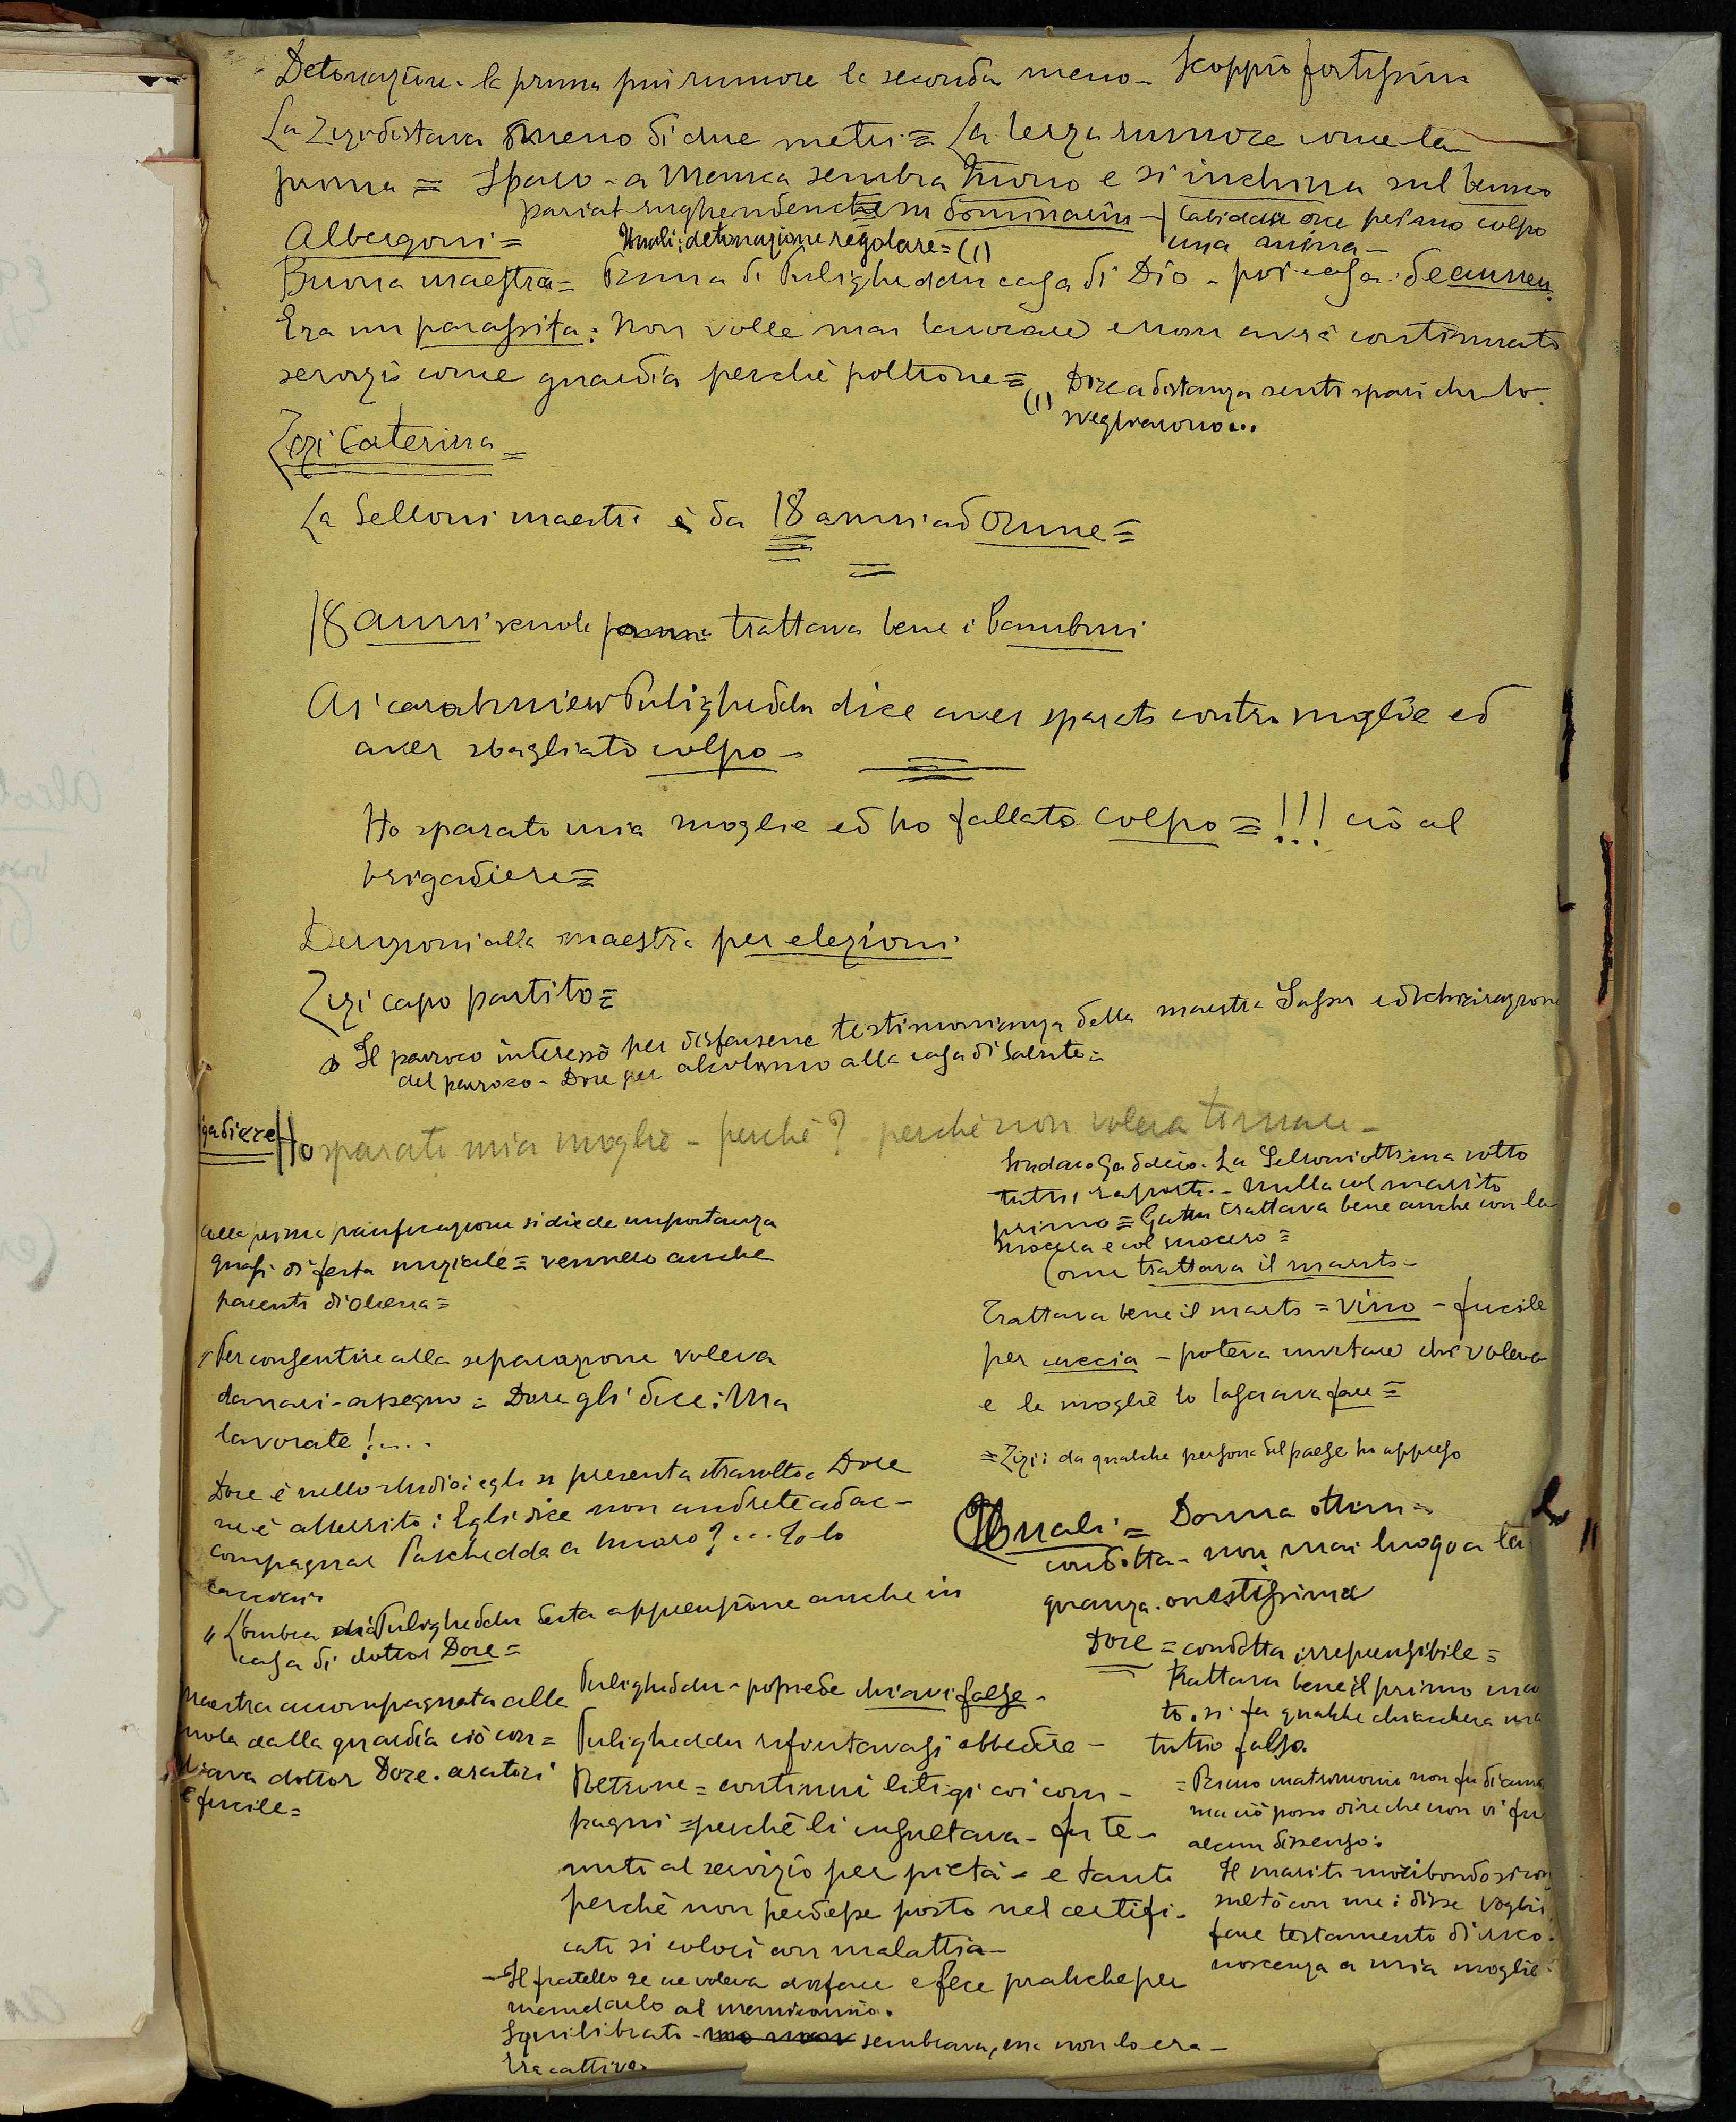 Detonazione - la prima più rumore la seconda meno - Scoppio fortissimo
La Zizi distava meno di due metri = La terza rumore come la
prima = Sparo - a Menica sembra tuono e si inchina sul banco
Albergoni =
Unali: detonazione regolare = (1)
dice primo colpo
una mina -
Buona maestra = Prima di Puligheddu casa di Dio - poi casa
Era un parassita: Non volle mai lavorare e non avrà continuato
servizio come guardia perchè poltrone =
(1) Dore a distanza sentì spari che lo
svegliarono...
Zizi Caterina =
La Selloni maestra è da 18 anni ad Orune =
18 anni scuola trattava bene i bambini
Ai carabinieri Puligheddu dice aver sparato contro moglie ed
aver sbagliato colpo -
Ho sparato mia moglie ed ho fallato colpo = !!! ciò al
brigadiere =
alla maestra per elezioni
Zizi capo partito =
Il parroco interessò per disfarsene testimonianza della maestra Sassu e dichiarazione
del parroco - Dore per alla casa di salute =
gadiere Ho sparato mia moglie - perchè? perchè non voleva tornare -
Sindaco. La Selloni ottima sotto
tutti i rapporti. - nulla col marito
primo = Gattu trattava bene anche con la
suocera e col suocero =
Come trattava il marito -
Trattava bene il marito = vino - fucile
per caccia - poteva invitare chi voleva
e la moglie lo lasciava fare =
= Zizi: da qualche persona del paese ho appreso
Unali = Donna ottima
condotta - non mai luogo a la
gnanza. onestissima
Dore = condotta irreprensibile =
Trattava bene il primo mari
to. si fa qualche chiacchera ma
tutto falso.
= Primo matrimonio non fu
ma ciò posso dire che non vi fu
alcun dissenso:
Il marito moribondo si con
sultò con me: disse voglio
fare testamento di rico
noscenza a mia moglie
alla prima pacificazione si diede importanza
quasi di festa nuziale = vennero anche
parenti di Oliena =
Per consentire alla separazione voleva
danari - assegno = Dore gli dice: Ma
lavorate!....
Dore è nello studio: egli si presenta stravolto. Dore
ne è atterrito: Egli dice non andrete ad ac-
compagnar Paschedda a Nuoro? ... Io lo
cacciai.
L'ombra di Puligheddu desta apprensione anche in
casa di dottor Dore =
Maestra accompagnata alla
uola dalla guardia ciò con =
dottor Dore.
e fucile =
Puligheddu - possiede chiavi false -
Puligheddu rifiutavasi obbedire -
Poltrone = continui litigi coi com-
pagni = perchè li insultava - fu te-
nuto al servizio per pietà - e tanto
perchè non perdesse posto nel certifi-
cato si colorì con malattia -
- Il fratello se ne voleva disfare e fece pratiche per
mandarlo al manicomio.
Squilibrato - sembrava, ma non lo era -
Era cattivo.